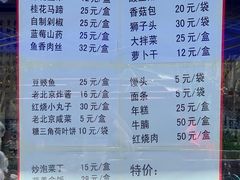 桂花马蹄 25元/盒
自制剁椒 25元/盒
蓝莓山药 25元/盒
鱼香肉丝 32元/盒
香菇包 20元/袋
狮子头 30元/袋
大拌菜 25元/盒
萝卜干 12元/盒
豆豉鱼 25元/盒
老北京炸酱 15元/盒
红烧小丸子 30元/盒
老北京咸菜 5元/袋
糖三角荷叶饼 10元/袋
馒头 5元/袋
面条 5元/袋
年糕 25元/盒
牛腩 50元/盒
红烧肉 50元/盒
炒泡菜丁 15元/盒
28元/盒
特价: